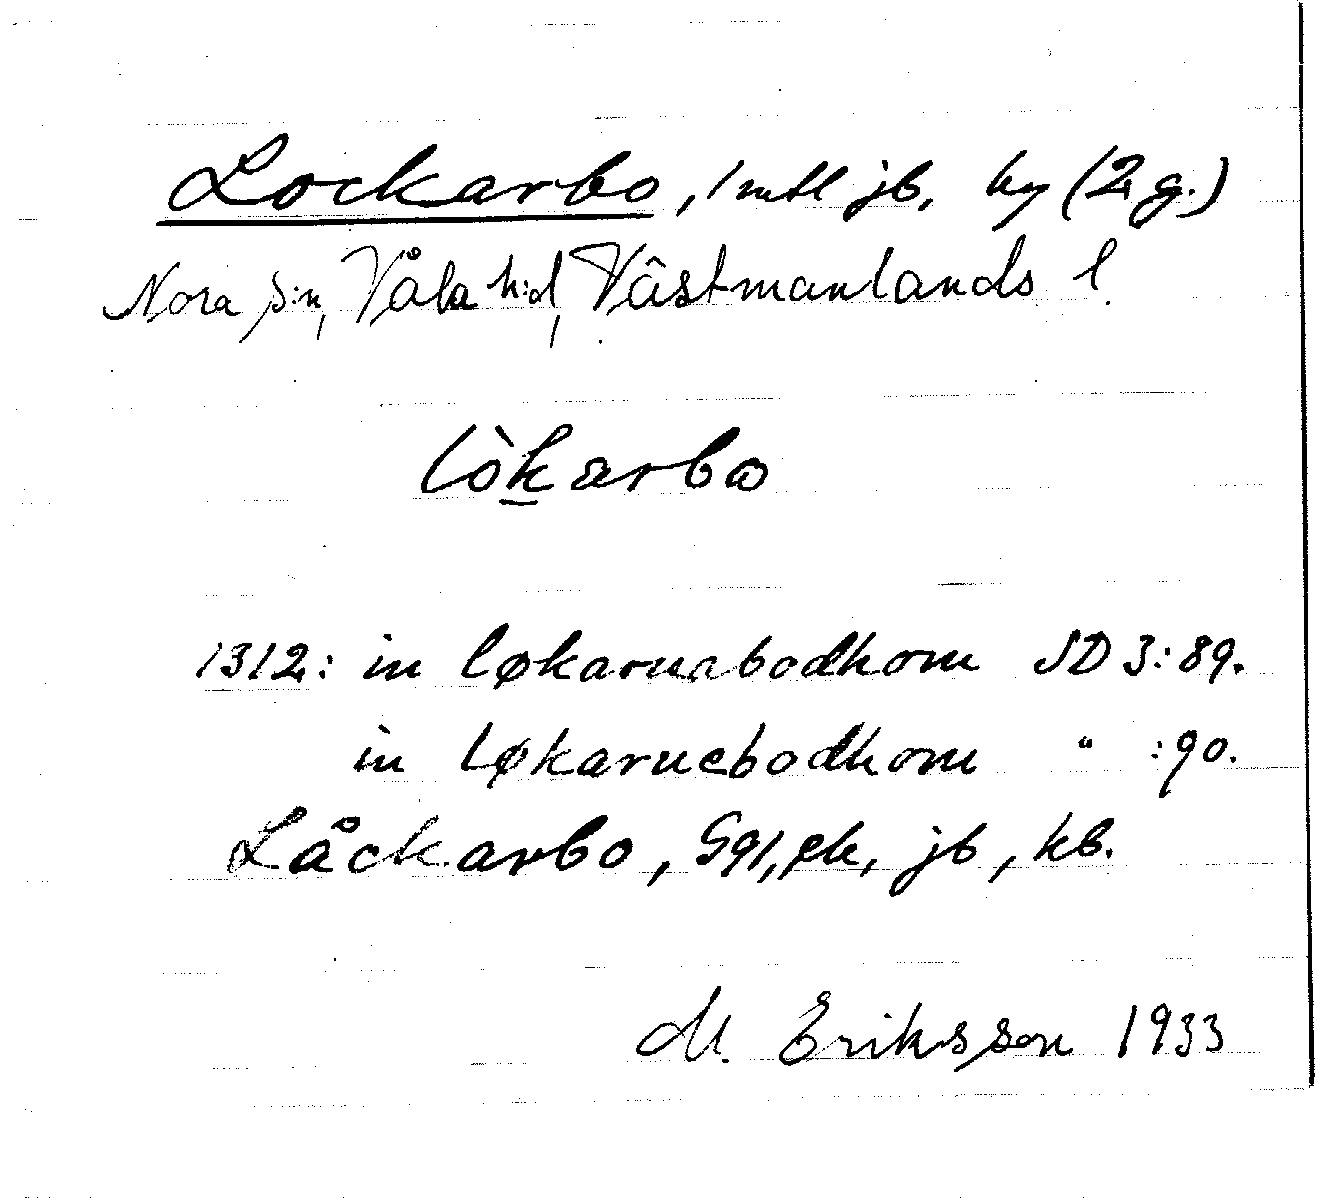 Lockarbo, 1 mtl jb, by (2 g.)
Nora s:n, Våla h:d, Västmanlands l.
lòkarbω
1312: in løkarnabodhom SD 3:89.
in løkarnebodhom " :90.
Låckarbo, G91, ek, jb, kb.
M. Eriksson 1933